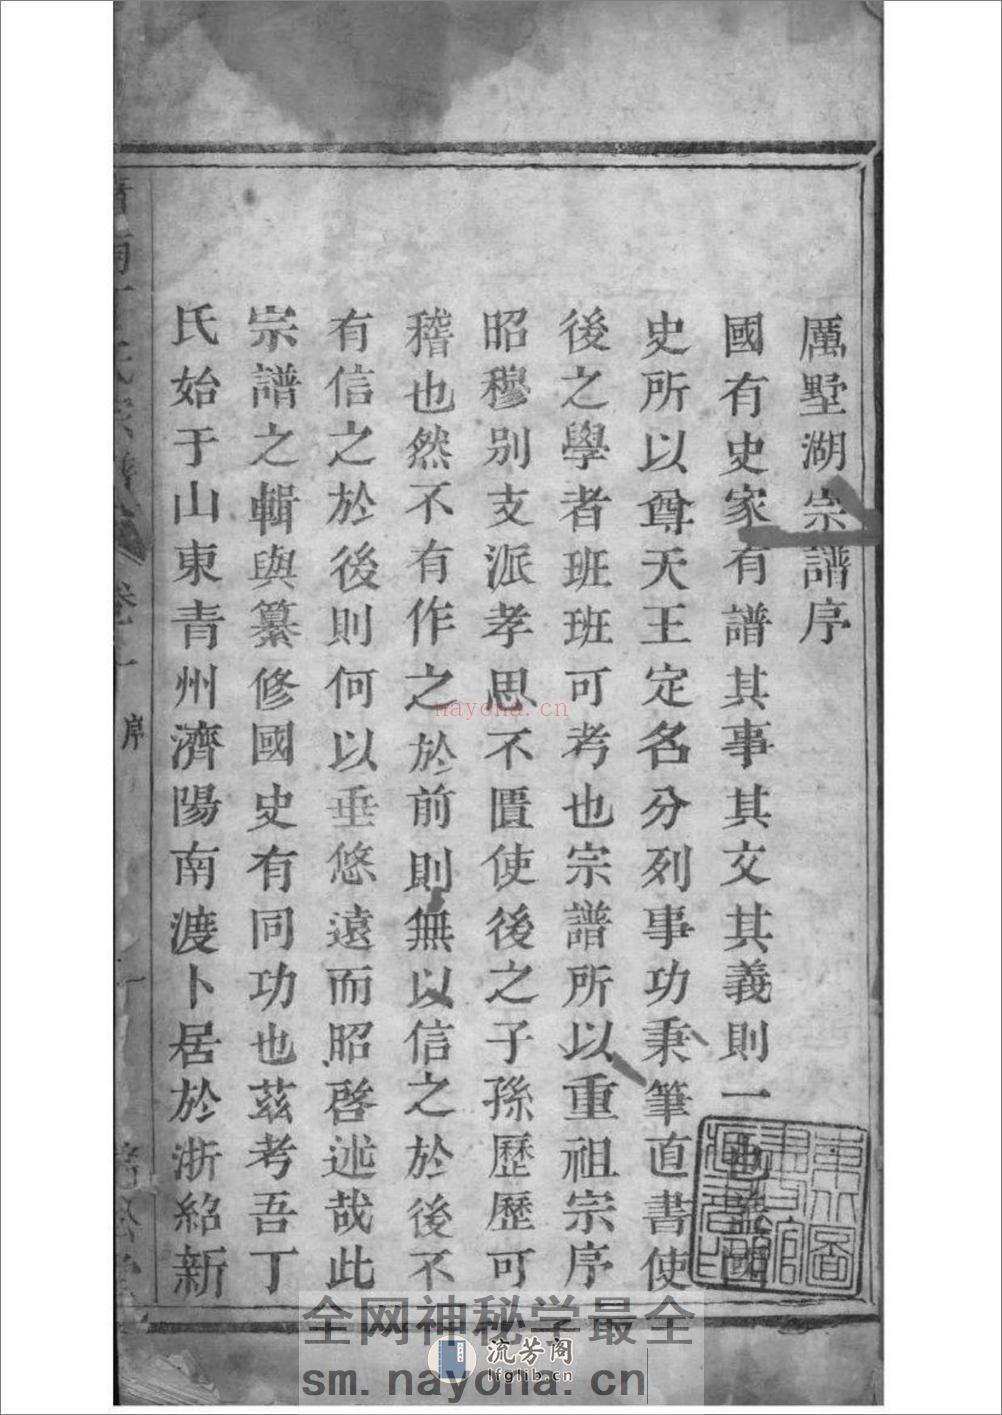 厲墅湖宗譜序
國有史家有譜其事其文其義則一也蓋國
史所以尊天王定名分列事功秉筆直書使
後之學者班班可考也宗譜所以重祖宗序
昭穆別支派孝思不匱使後之子孫歷歷可
稽也然不有作之於前則無以信之於後不
有信之於後則何以垂悠遠而昭啓述哉此
宗譜之輯與纂修國史有同功也茲考吾丁
氏始于山東青州濟陽南渡卜居於浙紹新
序
nayona.cn
全网神秘学最全
流芳阁
lfglib.cn
sm.nayona.cn